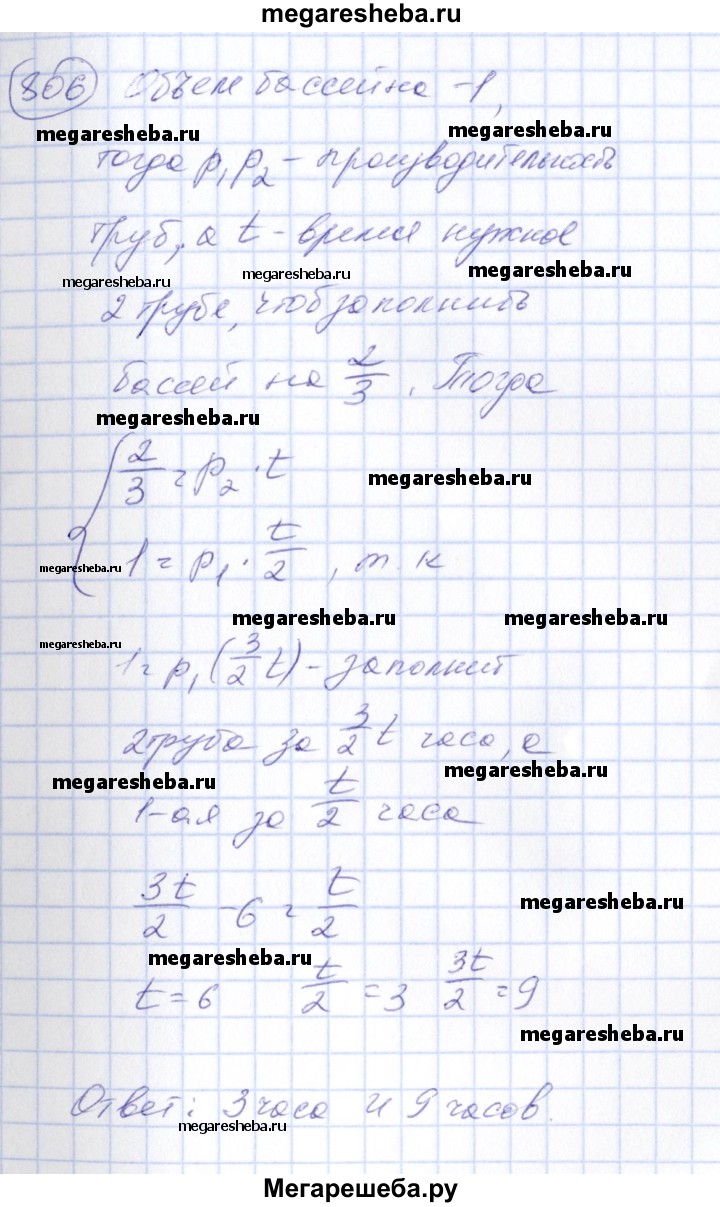 megaresheba.ru
806 Объем бассейна - 1,
megaresheba.ru megaresheba.ru
тогда p₁ p₂ - производительность
труб, а t - время нужное
megaresheba.ru megaresheba.ru megaresheba.ru
2 трубе, чтоб заполнить
бассей на 2/3. Тогда
megaresheba.ru
2/3 = p₂ · t
megaresheba.ru
1 = p₁ · t/2, т. к
megaresheba.ru
megaresheba.ru megaresheba.ru
megaresheba.ru
1 = p₁ (3/2 t) - заполнит
2 труба за 3/2 t часа, а
megaresheba.ru megaresheba.ru
1-ая за t/2 часа
3t/2 - 6 = t/2
megaresheba.ru
megaresheba.ru
t = 6 t/2 = 3 3t/2 = 9
megaresheba.ru
Ответ: 3 часа и 9 часов.
megaresheba.ru
Мегарешеба.ру